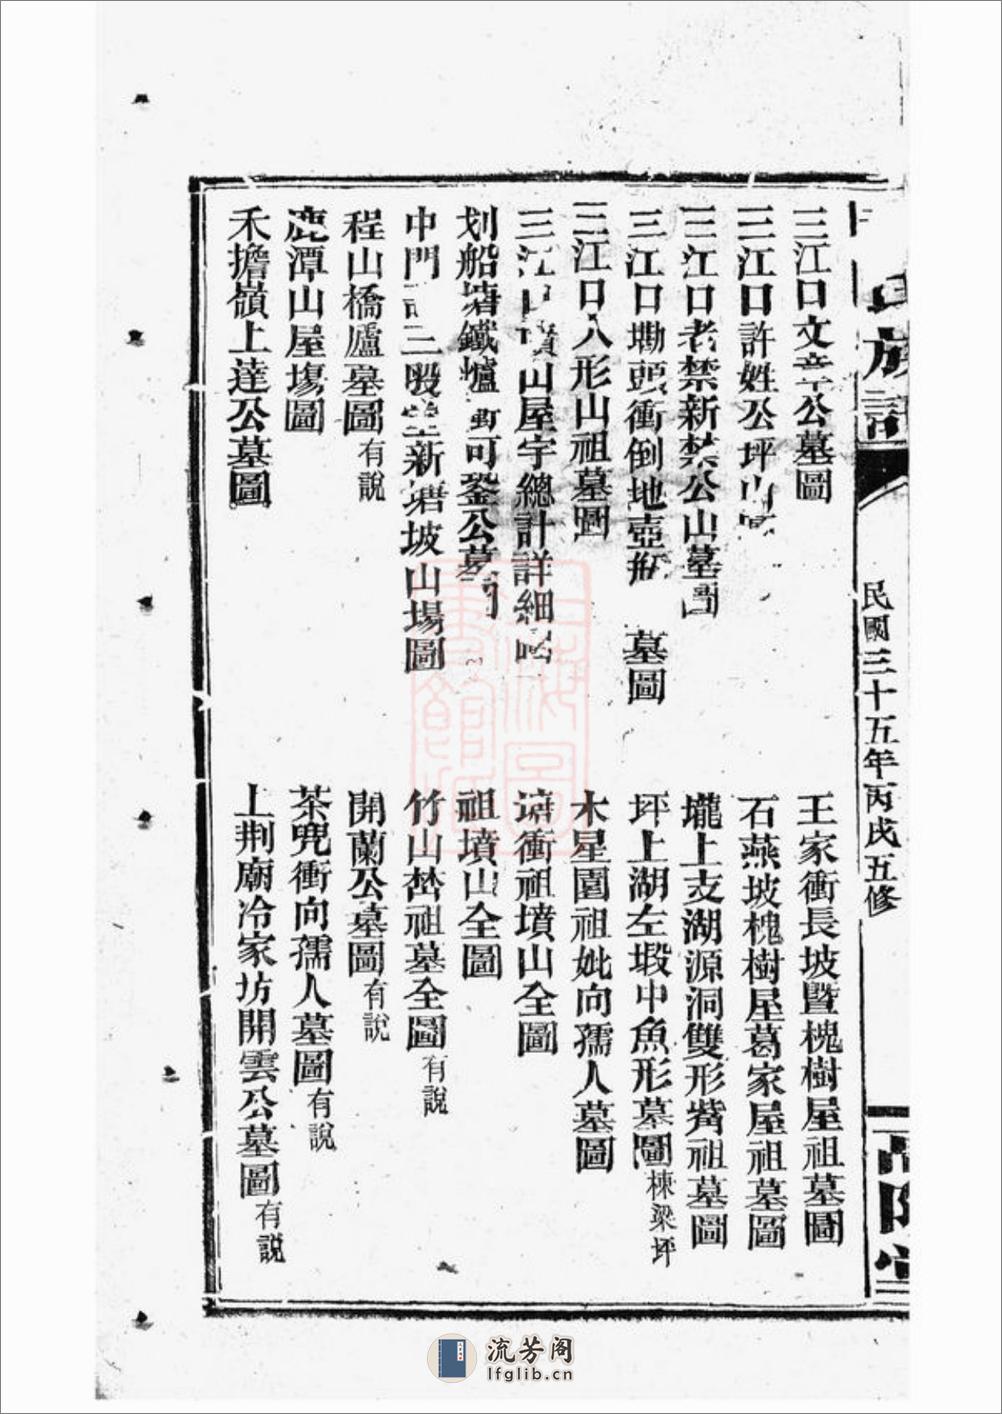 氏族譜
民國三十五年丙戌五修
三江口文章公墓圖
三江口許姓公坪山
三江口老禁新禁公山墓圖
三江口墈頭衝倒地壺瓶 墓圖
三江口人形山祖墓圖
三江口 山屋宇總計詳細
划船塘鐵爐衝可鋆公墓圖
中門 三 新塘坡山場圖
程山橋廬墓圖有說
鹿潭山屋塲圖
禾擔嶺上達公墓圖
王家衝長坡暨槐樹屋祖墓圖
石燕坡槐樹屋葛家屋祖墓圖
壠上支湖源洞雙形嘴祖墓圖
坪上湖左塅中魚形墓圖棟梁坪
木星園祖妣向孺人墓圖
衝祖墳山全圖
祖墳山全圖
竹山嵆祖墓全圖有說
開蘭公墓圖有說
茶兜衝向孺人墓圖有說
上荆廟冷家坊開雲公墓圖有說
流芳阁
lfglib.cn